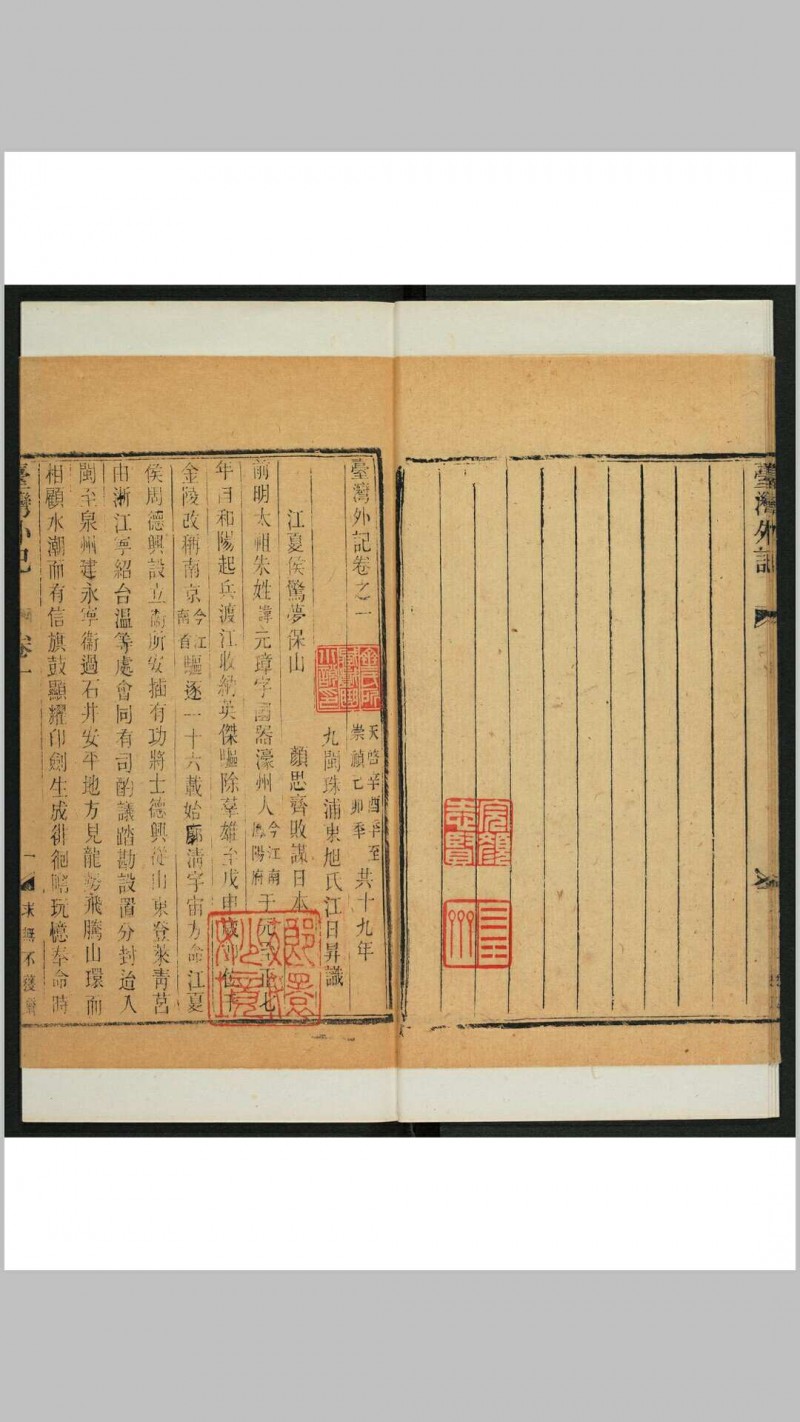 臺灣外記
臺灣外記卷之一
天啓辛酉年至
崇禎己卯年
共十九年
九閩珠浦東旭氏江日昇識
江夏侯驚夢保山 顏思齊敗謀日本
前明太祖朱姓諱元璋字國器濠州人今江南鳳陽府于元至正七
年自和陽起兵渡江收納英傑驅除羣雄至戊申歲
金陵改稱南京今江南省驅逐一十六載始廓清宇宙方命江夏
侯周德興設立衛所安插有功將士德興從山東登萊靑莒
由浙江寧紹台溫等處會同有司酌議踏勘設置分封迨入
閩至泉州建永寧衛過石井安平地方見龍勢飛騰山環而
相顧水潮而有信旗鼓顯耀印劍生成徘徊賭玩憶奉命時
臺灣外記
卷一
一
求無不獲齋